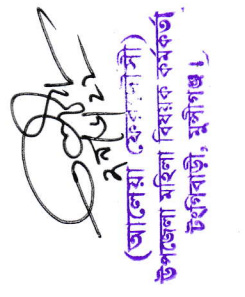 ২৭/৭/২২
(আলেয়া ফেরদৌসী)
উপজেলা মহিলা বিষয়ক কর্মকর্তা
টংগিবাড়ী, মুন্সীগঞ্জ।